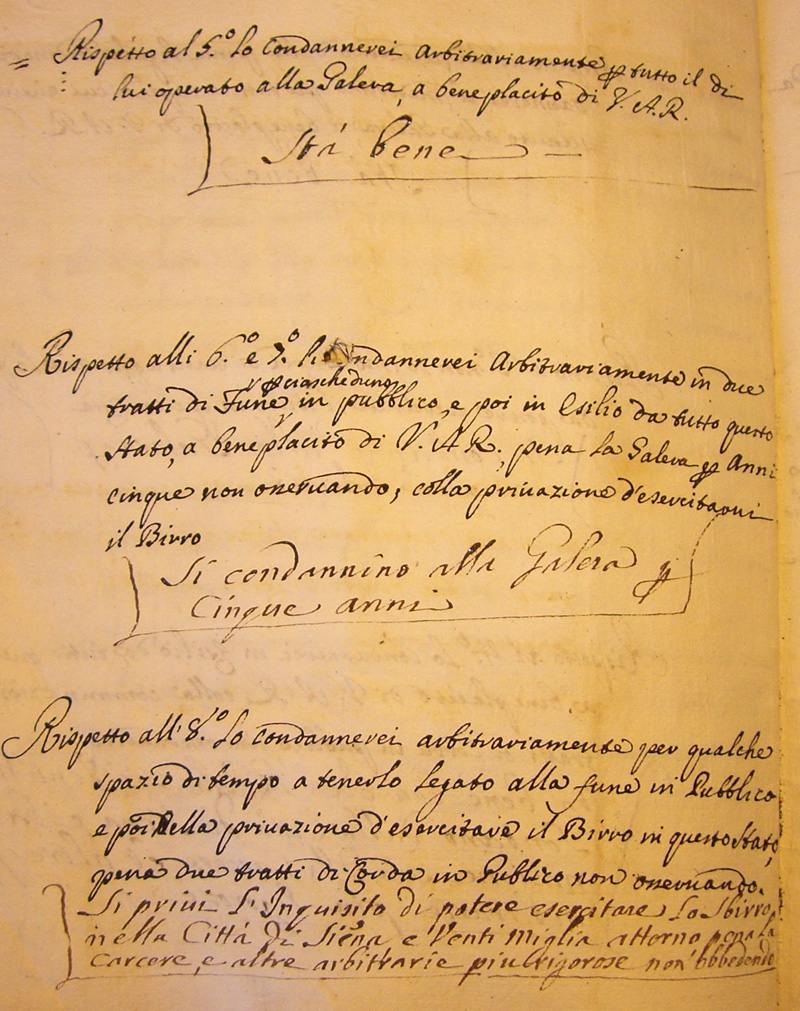 Rispetto al 5.º lo Condannerei Arbitrariamente p tutto il di
lui operato alla Galera, a beneplacito di V. A. R.
Stà bene
Rispetto alli 6.º e 7.º li Condannerei Arbitrariamente in due
p ciascheduno
tratti di Fune in pubblico, e poi in Esilio da tutto questo
Stato, a beneplacito di V. A. R., pena la Galera p Anni
cinque non osservando, colla privazione d'esercitare
il Birro
Si condannino alla Galera p
Cinque anni
Rispetto all' 8.º lo Condannerei arbitrariamente per qualche
spazio di tempo a tenerlo legato alla fune in Pubblico
e poi della privazione d'esercitare il Birro in questo Stato,
pena due tratti di Corda in Publico non osservando.
Si privi l'Inquisito di potere esercitare lo Sbirro
nella Città di Siena, e Venti Miglia attorno pena la
Carcere, e altre arbitrarie piu rigorose non obbedendo